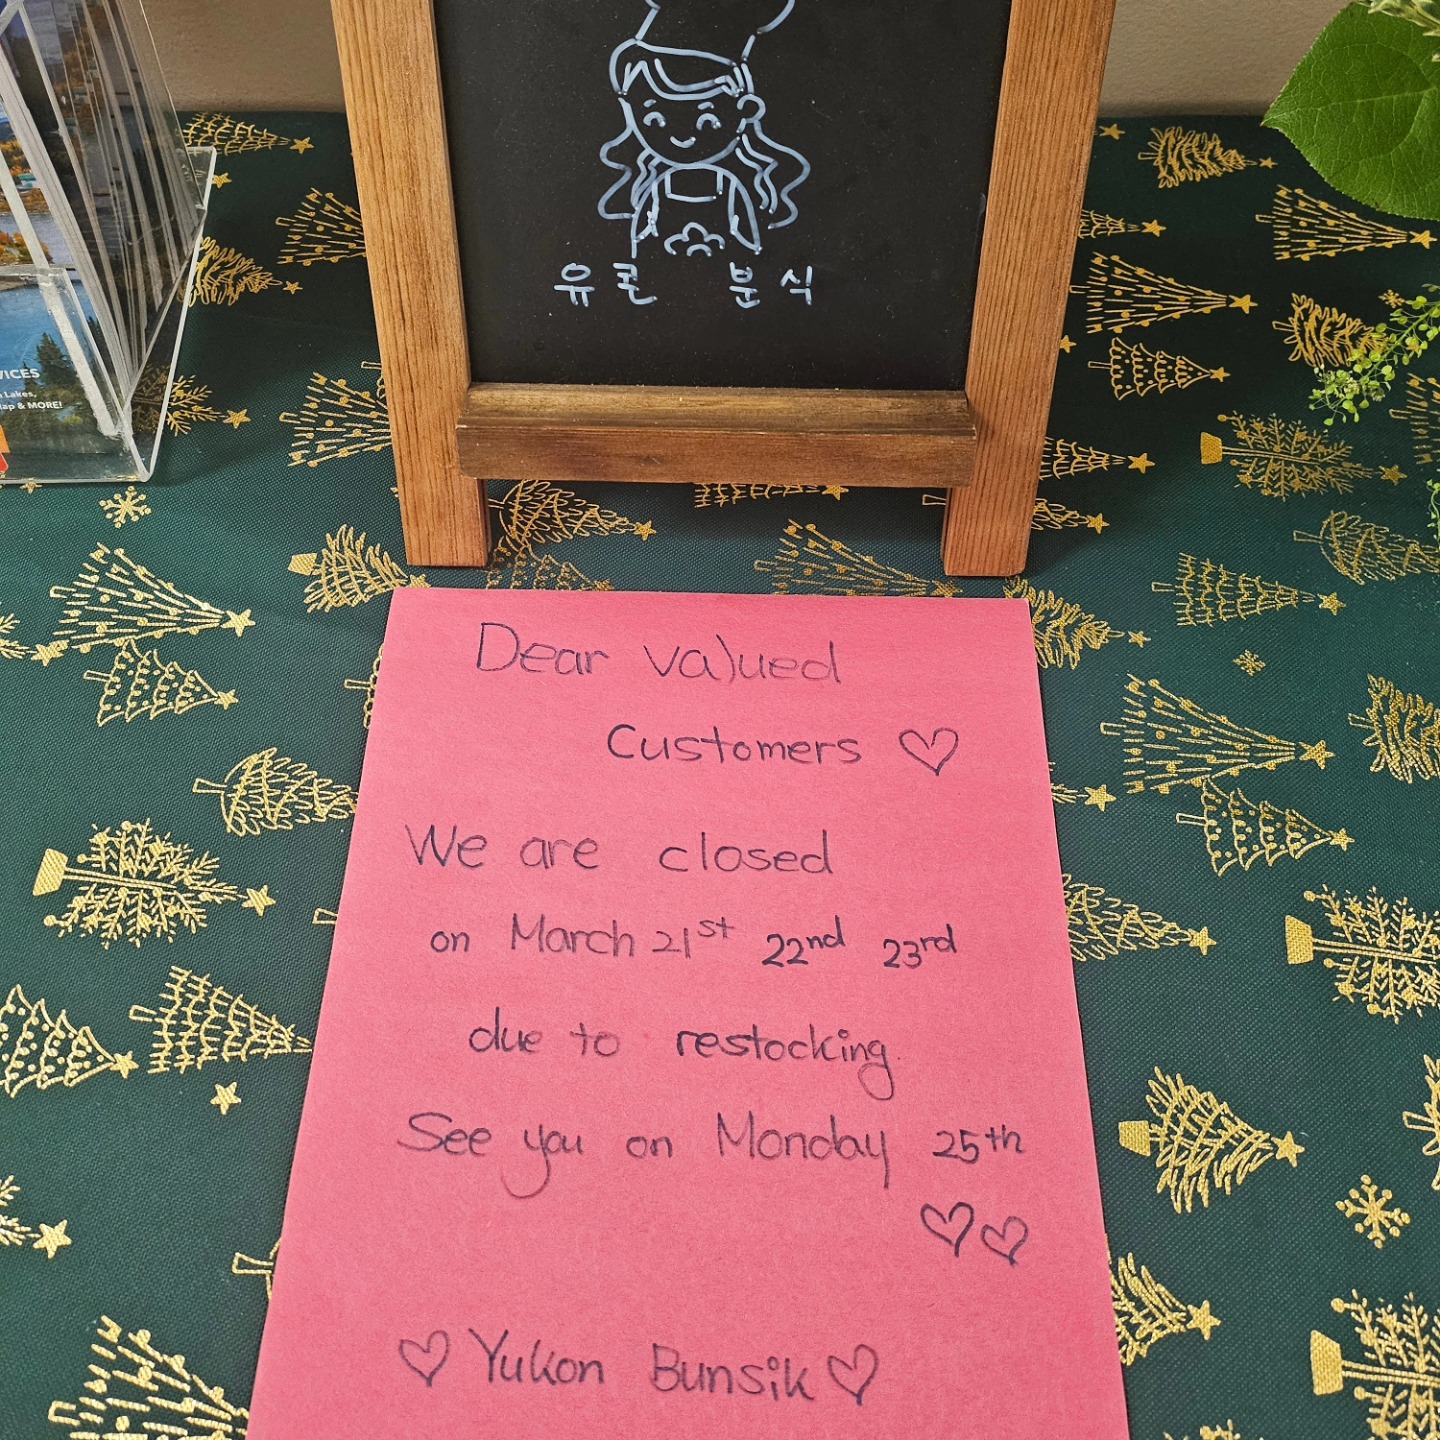 유콘 분식
VICES
Lakes,
Map & MORE!
Dear Valued
Customers ♡
We are closed
on March 21st 22nd 23rd
due to restocking.
See you on Monday 25th
♡♡
♡ Yukon Bunsik ♡